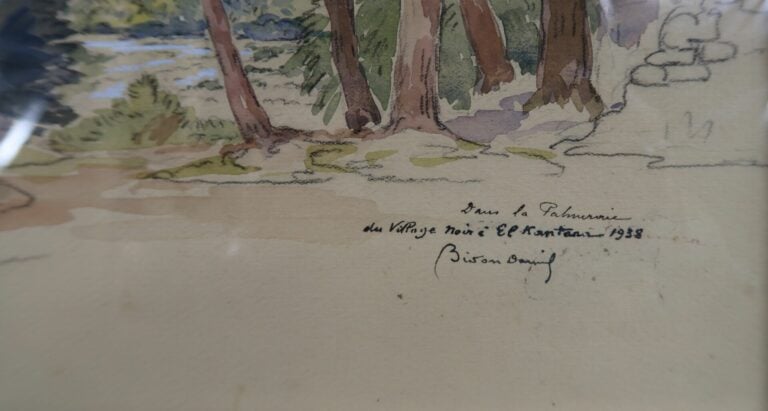 Dans la Palmeraie
du Village Noir à El Kantara 1938